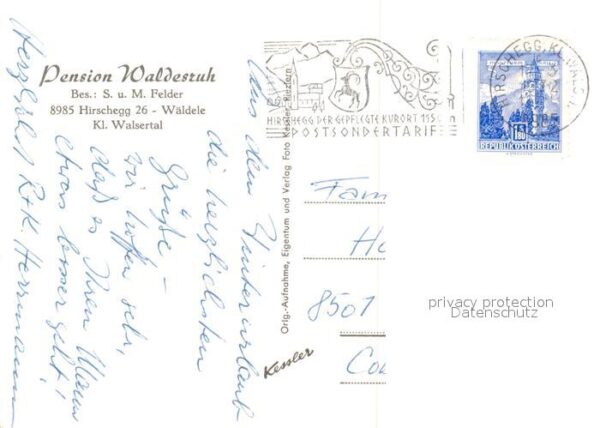 Pension Waldesruh
Bes.: S. u. M. Felder
8985 Hirschegg 26 - Wäldele
Kl. Walsertal
Aus dem Winterurlaub
die herzlichsten
Grüße –
wir hoffen sehr,
daß es Ihrem Mann
etwas besser geht!
Herzlichst R+K. Herrmann
Orig.-Aufnahme, Eigentum und Verlag Foto Kessler, Riezlern
Kessler
HIRSCHEGG DER GEPFLEGTE KURORT
POSTSONDERTARIF
HIRSCHEGG, KL. WALS
1.50
REPUBLIK ÖSTERREICH
Fam
8501
privacy protection
Datenschutz